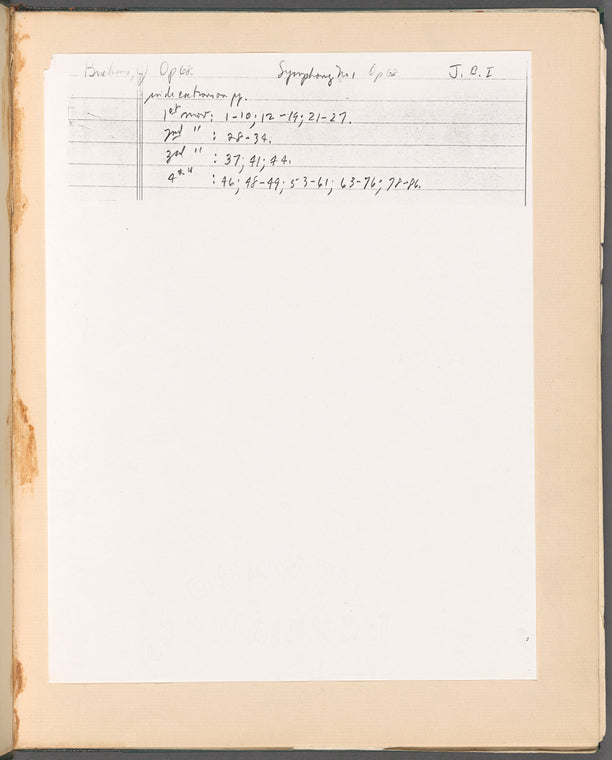 Brahms, J Op 68. Symphony No 1 Op 68 J. B. I
indications on pg.
1st mov: 1-10; 12-19; 21-27.
2nd " : 28-34.
3rd " : 37; 41; 44.
4th " : 46; 48-49; 53-61; 63-76; 78-86.